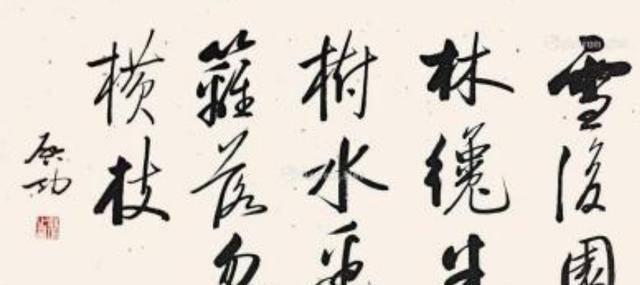 雪後園
林纔半
樹水邊
籬落忽
橫枝
啟功